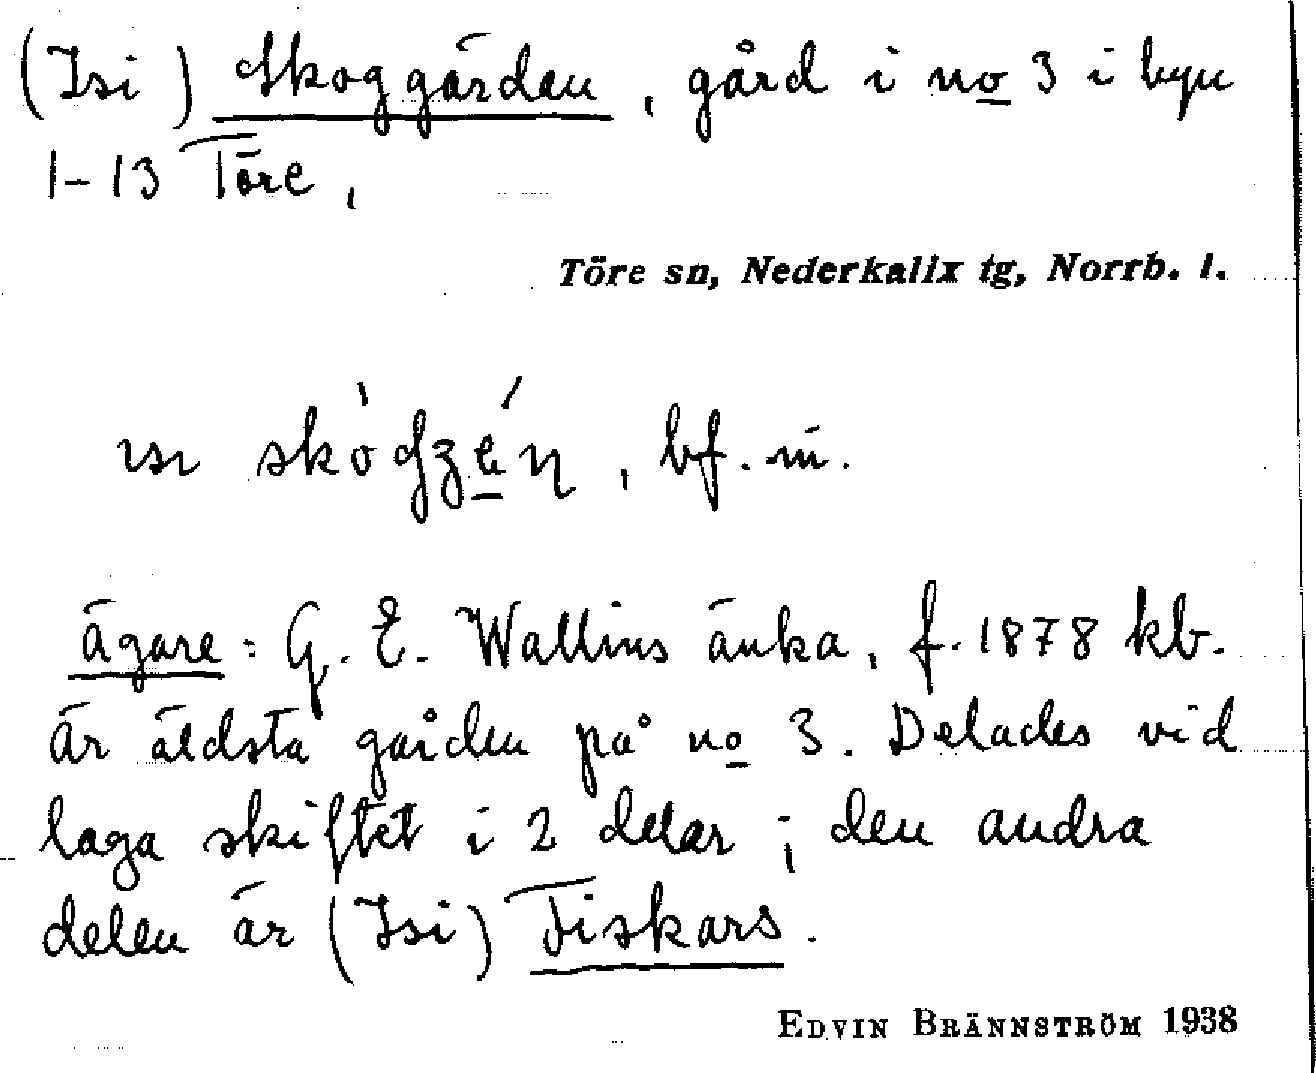 (Isi) Skoggården, gård i no 3 i byn
1-13 Töre,
Töre sn, Nederkalix tg, Norrb. l.
bf. m.
Ägare: G. E. Wallins änka, f. 1878 kb.
Är äldsta gården på no 3. Delades vid
laga skiftet i 2 delar; den andra
delen är (Isi) Fiskars.
EDVIN BRÄNNSTRÖM 1938